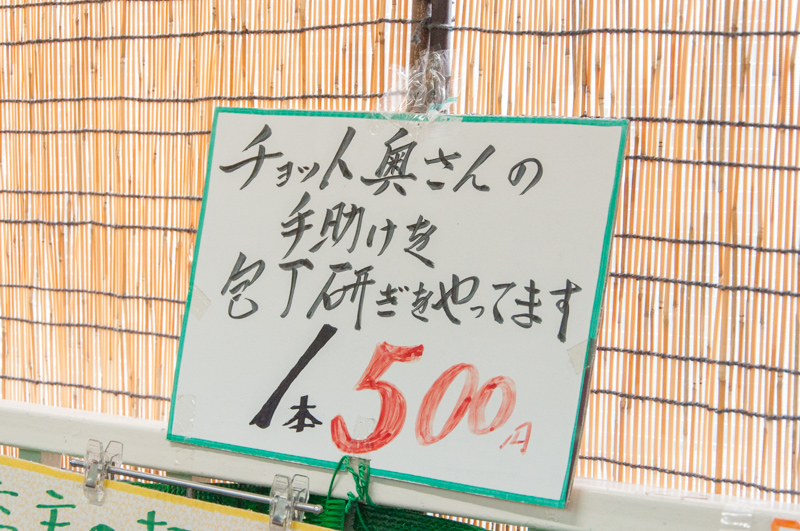 チョット奥さんの
手助けを
包丁研ぎをやってます
1本500円